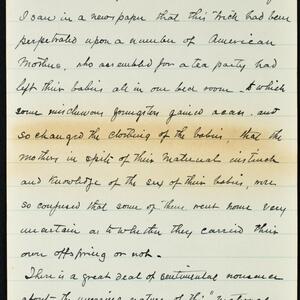 I saw in a newspaper that this trick had been
perpetrated upon a number of American
Mothers, who assembled for a tea party had
left their babies all in one bed room - to which
some mischievous youngsters gained access and
so changed the clothing of the babies, that the
mothers in spite of their maternal instinct
and knowledge of the sex of their babies, were
so confused that some of them went home very
uncertain as to whether they carried their
own offspring or not -
There is a great deal of sentimental nonsense
about the nature of this